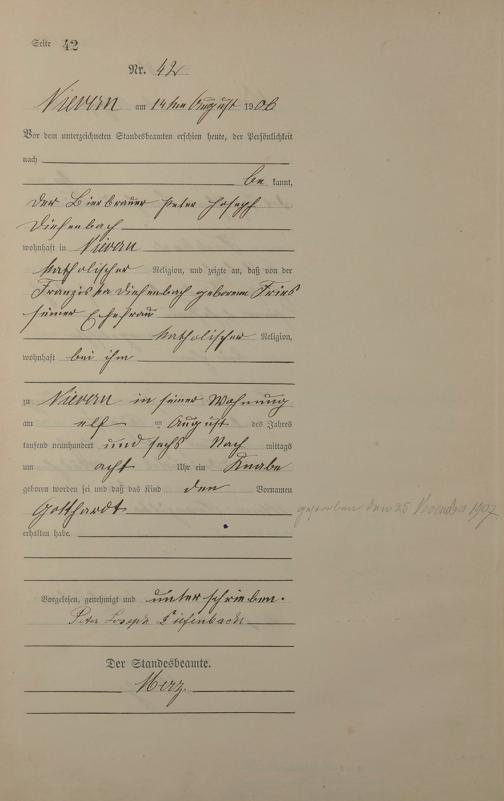 Seite 42
Nr. 42
Nievern am 14ten August 1906
Vor dem unterzeichneten Standesbeamten erschien heute, der Persönlichkeit
nach
be kannt,
der Bierbrauer Peter Joseph
Diefenbach
wohnhaft in Nievern
katholischer Religion, und zeigte an, daß von der
Franziska Diefenbach geborenen Fries
seiner Ehefrau
katholischer Religion,
wohnhaft bei ihm
zu Nievern in seiner Wohnung
am elf ten August des Jahres
tausend neunhundert und sechs Nach mittags
um acht Uhr ein Knabe
geboren worden sei und daß das Kind den Vornamen
Gotthardt
gestorben den 25 November 1907
erhalten habe.
Vorgelesen, genehmigt und unterschrieben.
Peter Joseph Diefenbach
Der Standesbeamte.
Merz.